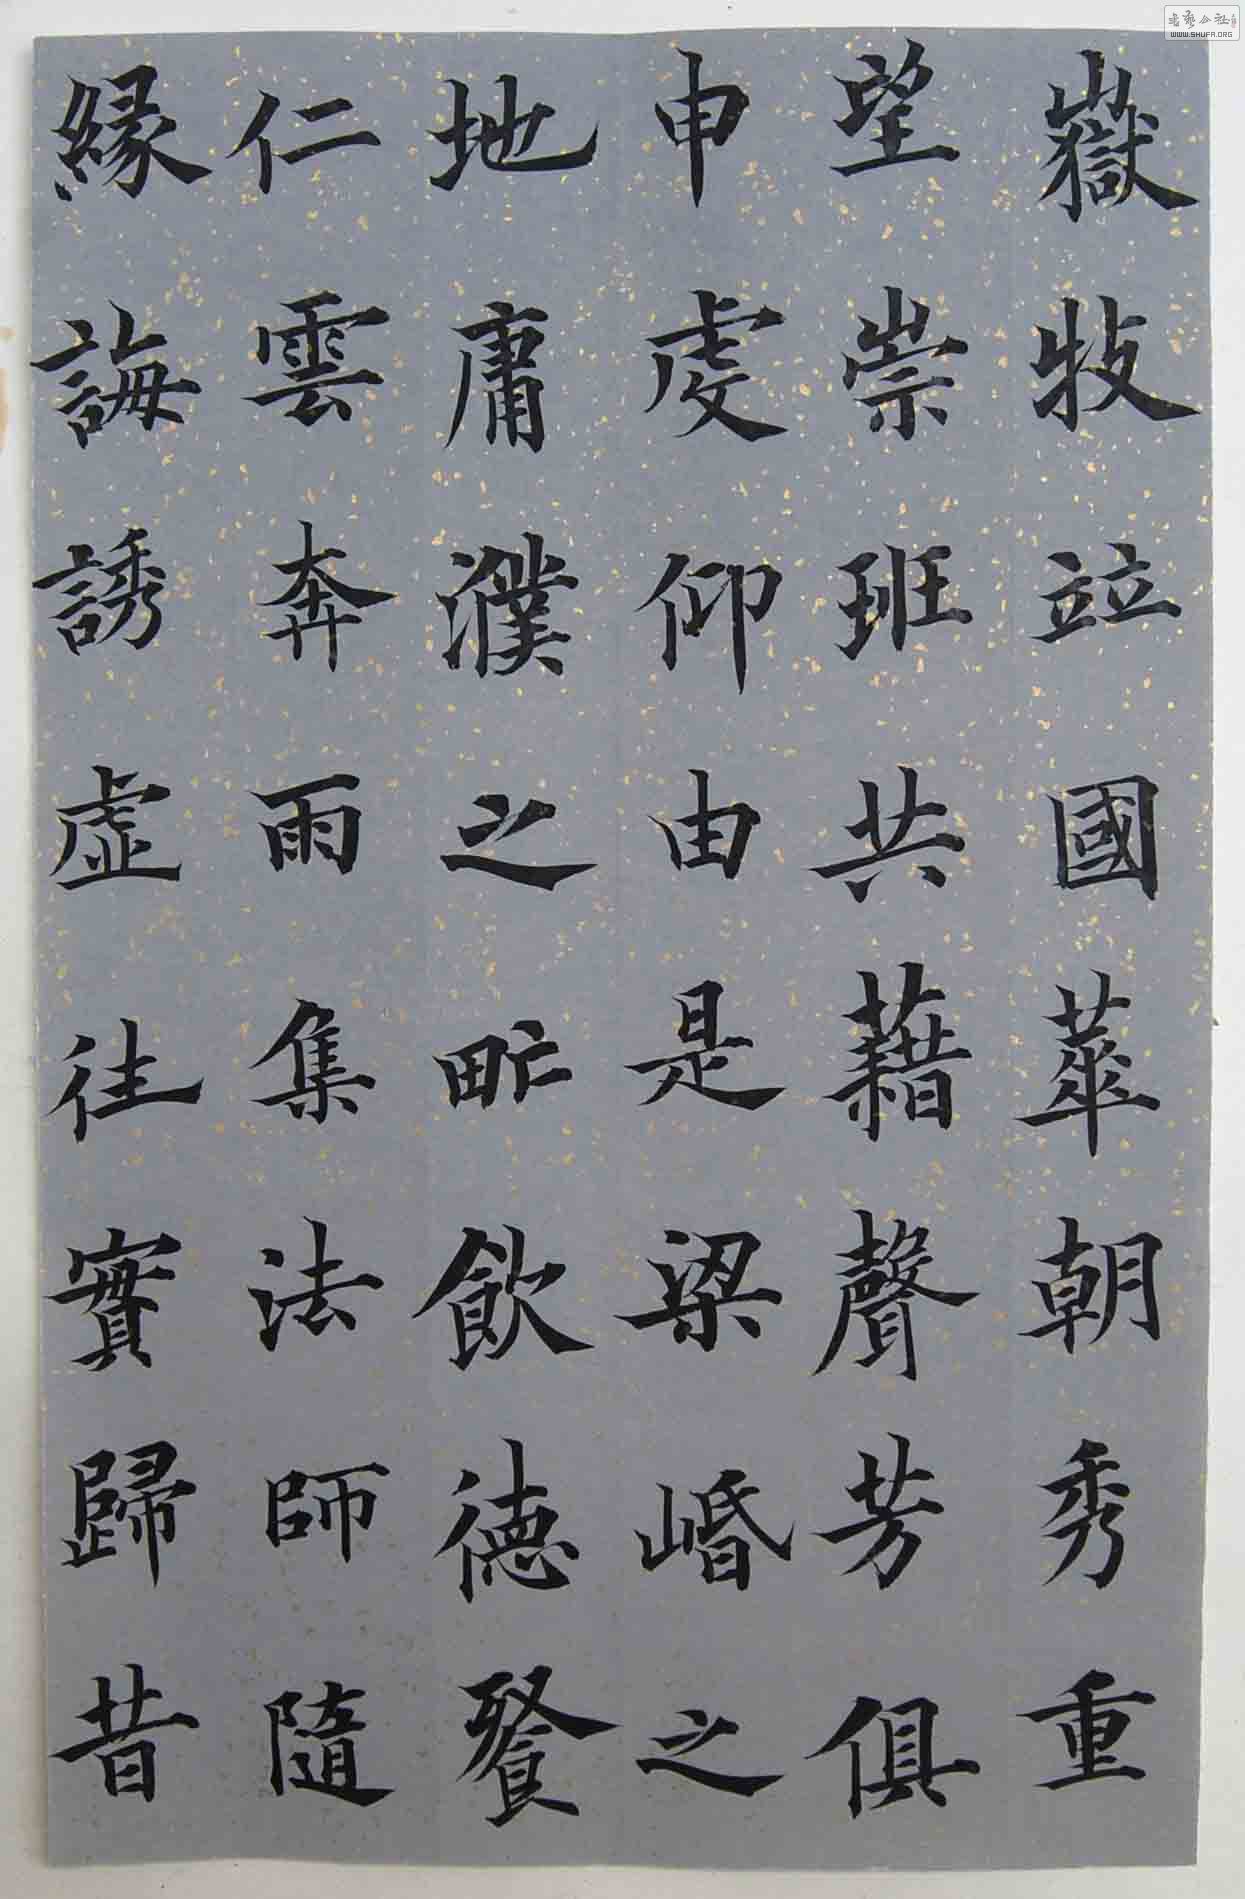 嶽牧竝國華朝秀重
望崇班共藉聲芳俱
申虔仰由是梁岷之
地庸濮之甿飲德餐
仁雲奔雨集法師隨
緣誨誘虛往實歸昔
WWW.SHUFA.ORG